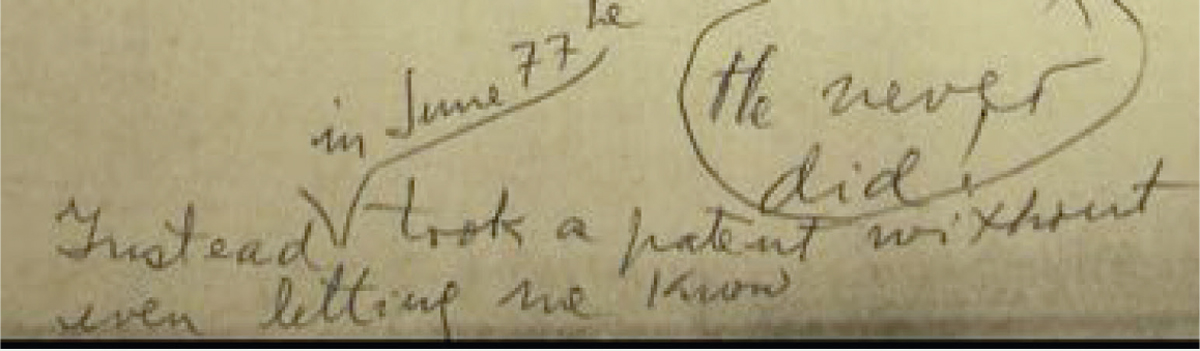 in June 77 he
He never
did.
Instead took a patent without
even letting me know